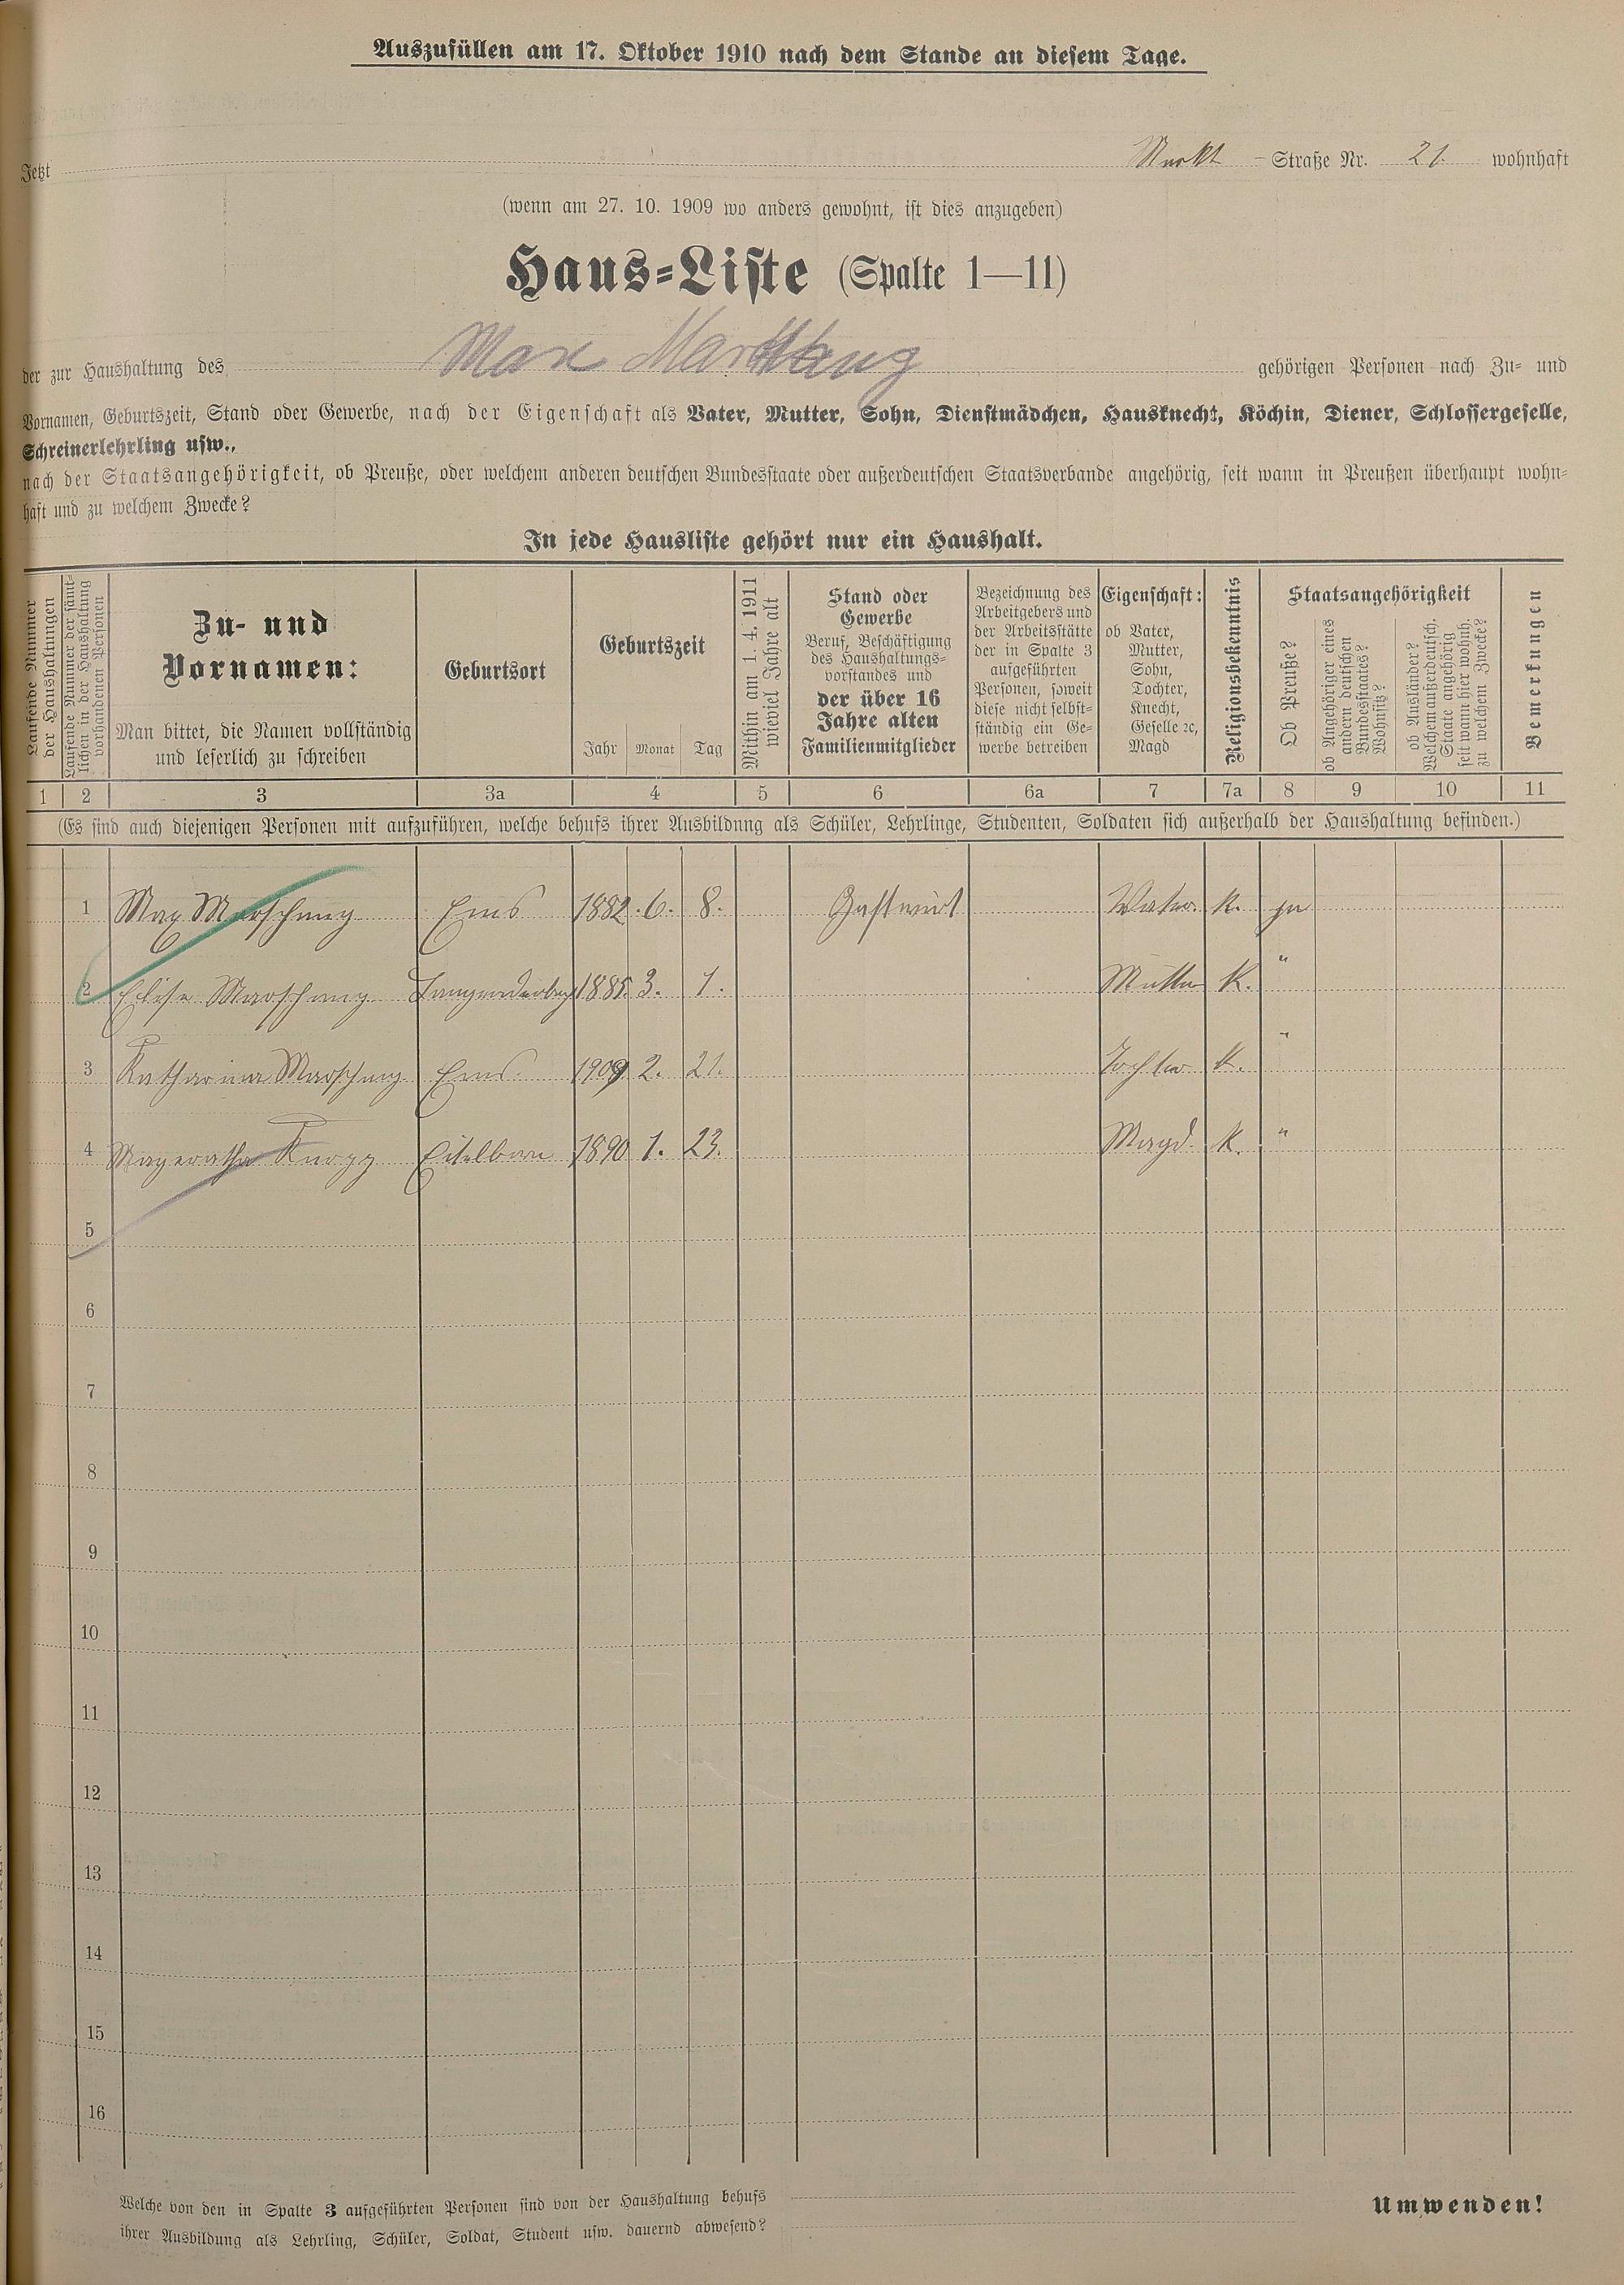 Auszufüllen am 17. Oktober 1910 nach dem Stande an diesem Tage.
Jetzt Markt - Straße Nr. 21. wohnhaft
(wenn am 27. 10. 1909 wo anders gewohnt, ist dies anzugeben)
Haus-Liste (Spalte 1—11)
der zur Haushaltung des Max gehörigen Personen nach Zu- und
Vornamen, Geburtszeit, Stand oder Gewerbe, nach der Eigenschaft als Vater, Mutter, Sohn, Dienstmädchen, Hausknecht, Köchin, Diener, Schlossergeselle,
Schreinerlehrling usw.,
nach der Staatsangehörigkeit, ob Preuße, oder welchem anderen deutschen Bundesstaate oder außerdeutschen Staatsverbande angehörig, seit wann in Preußen überhaupt wohn-
haft und zu welchem Zwecke?
In jede Hausliste gehört nur ein Haushalt.
Laufende Nummer
der Haushaltungen
Laufende Nummer der sämt-
lichen in der Haushaltung
vorhandenen Personen
Zu- und
Vornamen:
Man bittet, die Namen vollständig
und leserlich zu schreiben
Geburtsort
Geburtszeit
Jahr Monat Tag
Mithin am 1. 4. 1911
wieviel Jahre alt
Stand oder
Gewerbe
Beruf, Beschäftigung
des Haushaltungs-
vorstandes und
der über 16
Jahre alten
Familienmitglieder
Bezeichnung des
Arbeitgebers und
der Arbeitsstätte
der in Spalte 3
aufgeführten
Personen, soweit
diese nicht selbst-
ständig ein Ge-
werbe betreiben
Eigenschaft:
ob Vater,
Mutter,
Sohn,
Tochter,
Knecht,
Geselle ꝛc,
Magd
Religionsbekenntnis
Staatsangehörigkeit
Ob Preuße?
ob Angehöriger eines
andern deutschen
Bundesstaates?
Wohnsitz?
ob Ausländer?
Welchem außerdeutsch.
Staate angehörig
seit wann hier wohnh.
zu welchem Zwecke?
Bemerkungen
1 2 3 3a 4 5 6 6a 7 7a 8 9 10 11
(Es sind auch diejenigen Personen mit aufzuführen, welche behufs ihrer Ausbildung als Schüler, Lehrlinge, Studenten, Soldaten sich außerhalb der Haushaltung befinden.)
1 Max Marschang Ems 1882. 6. 8. Gastwirt Vater. k. ja
2 Elise Marschang 1885. 3. 1. Mutter K. "
3 Katharina Marschang Ems. 1909 2. 21. Tochter k. "
4 Eitelborn 1890 1. 23. Magd. k. "
5
6
7
8
9
10
11
12
13
14
15
16
Welche von den in Spalte 3 aufgeführten Personen sind von der Haushaltung behufs
ihrer Ausbildung als Lehrling, Schüler, Soldat, Student usw. dauernd abwesend?
Umwenden!